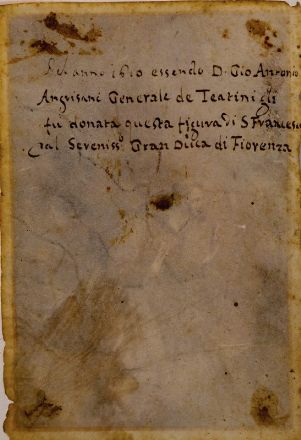 Del anno 1610 essendo D. Gio Antonio
Angrisani Generale de Teatini gli
fu donata questa figura di S Francesco
dal Sereniss.º Gran Duca di Fiorenza